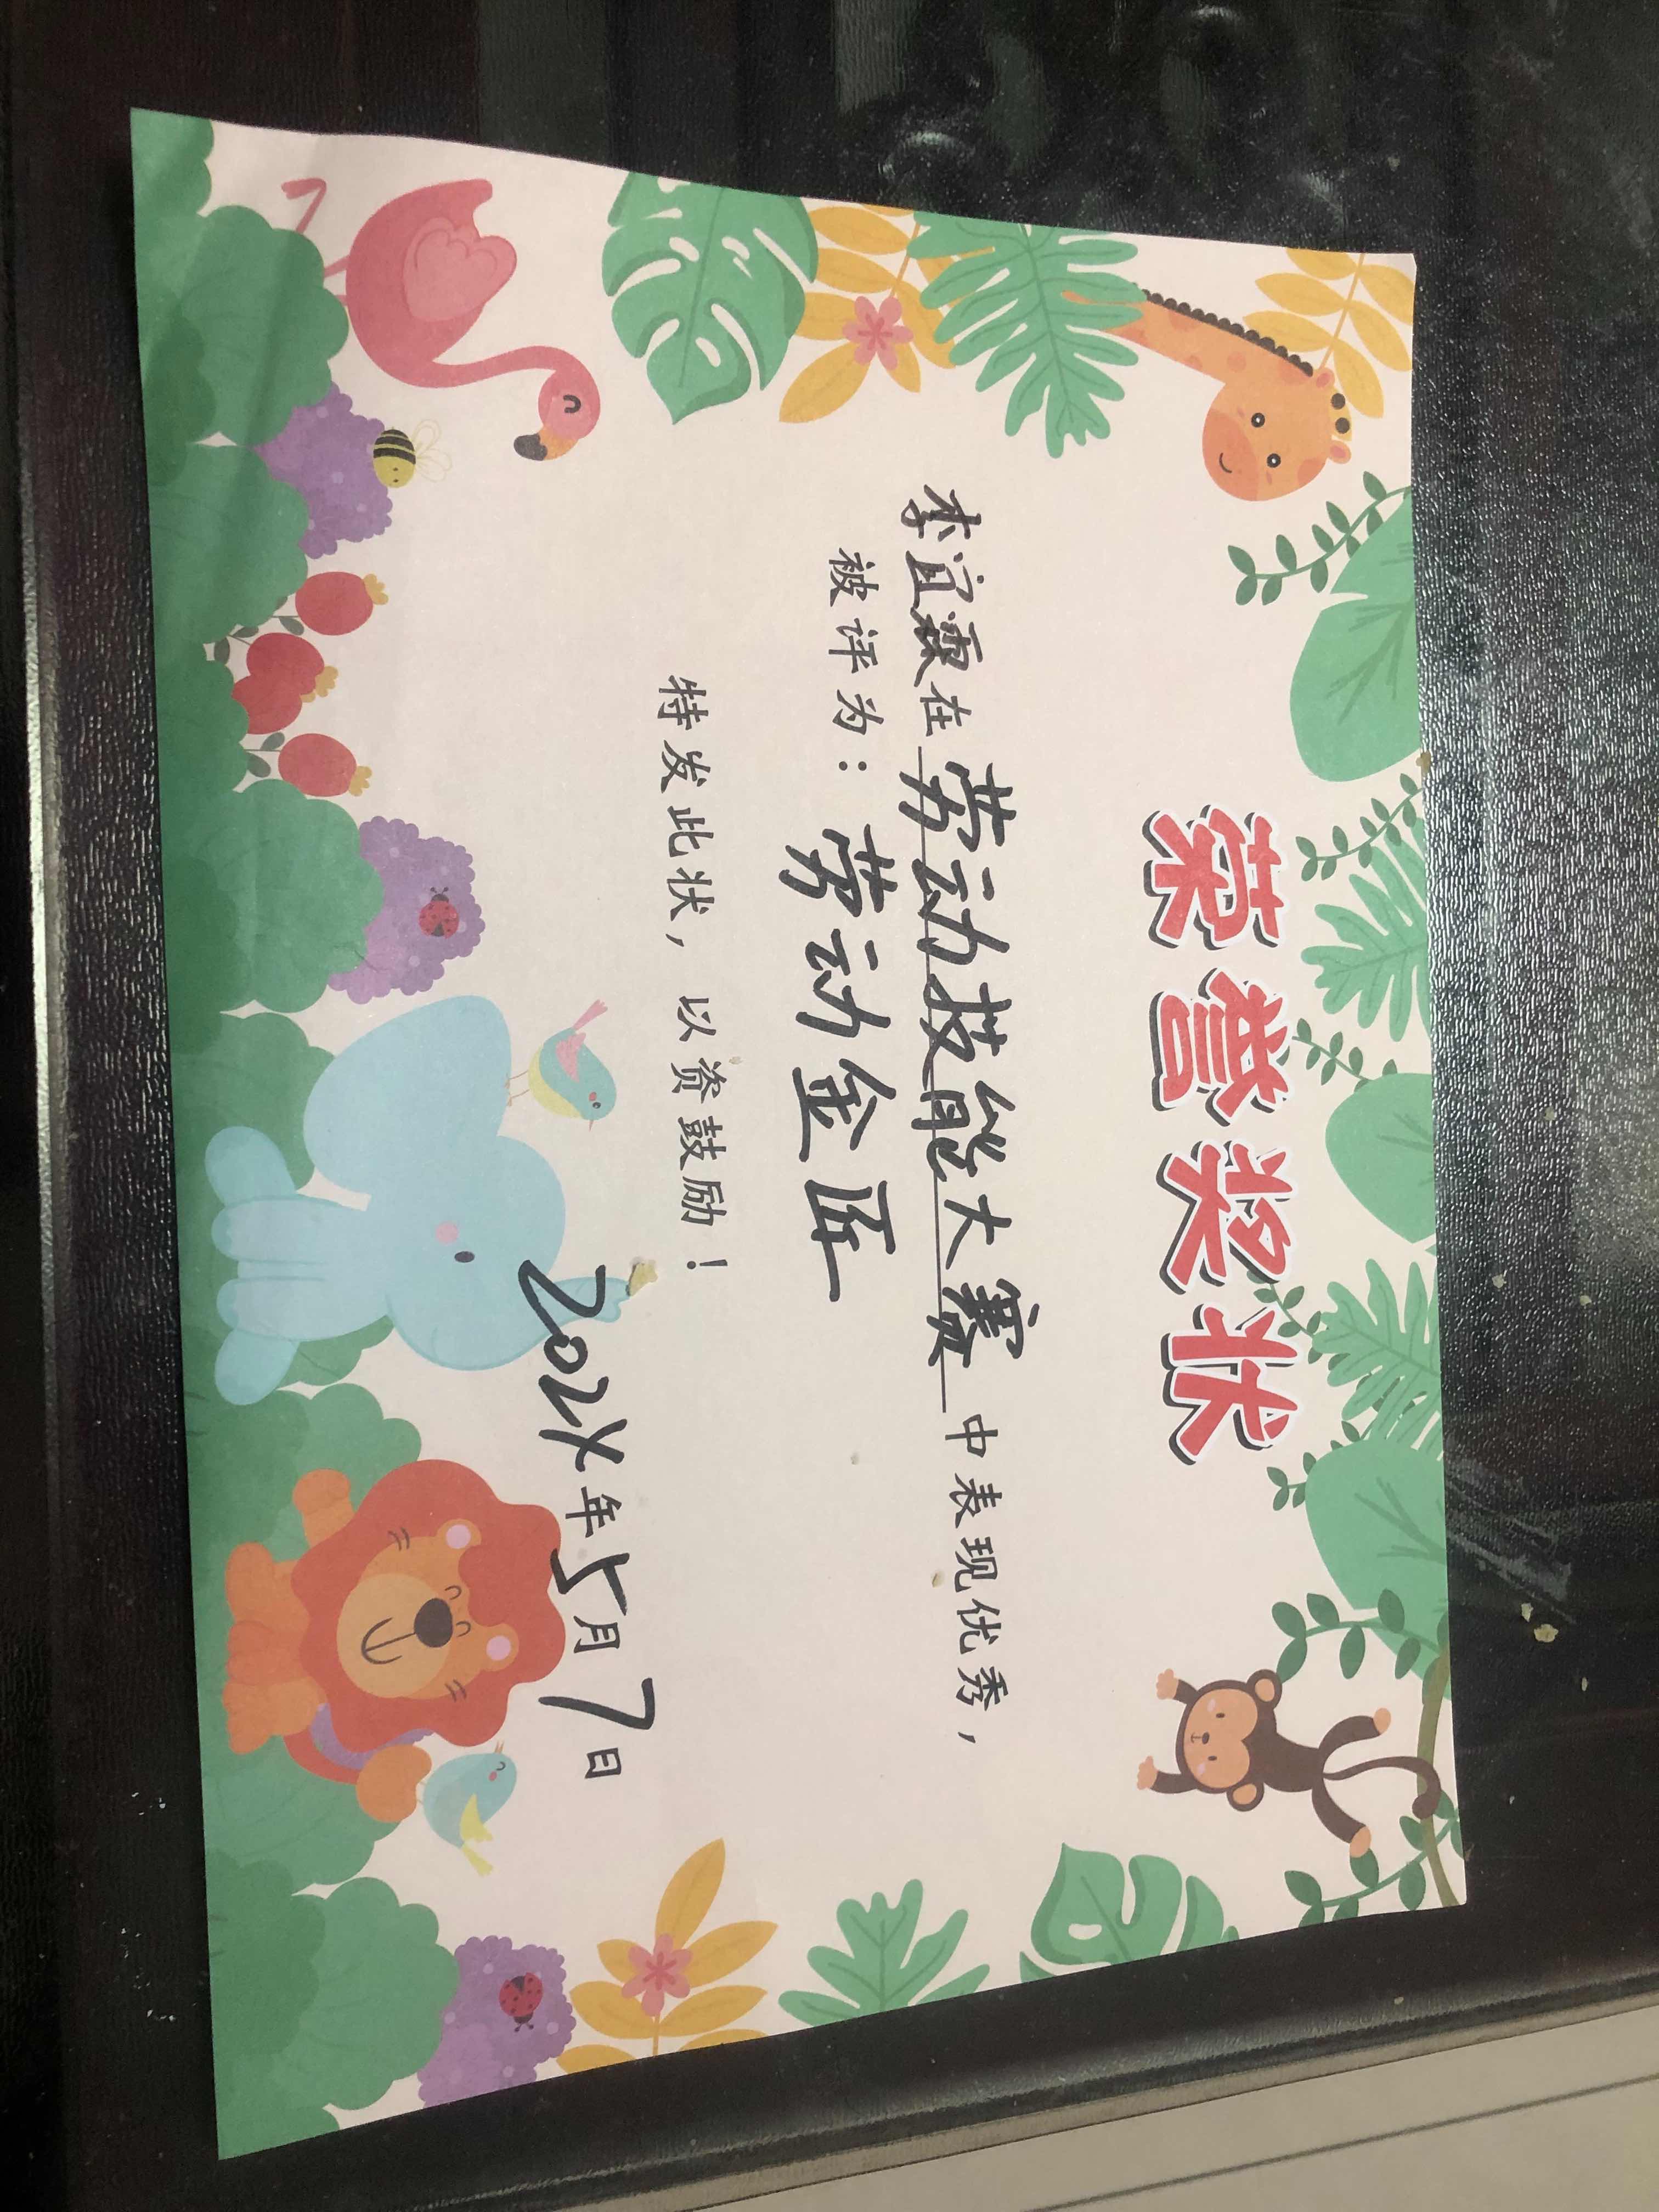 荣誉奖状
李宜在劳动技能大赛中表现优秀，
被评为：劳动金匠
特发此状，以资鼓励！
2024年5月7日